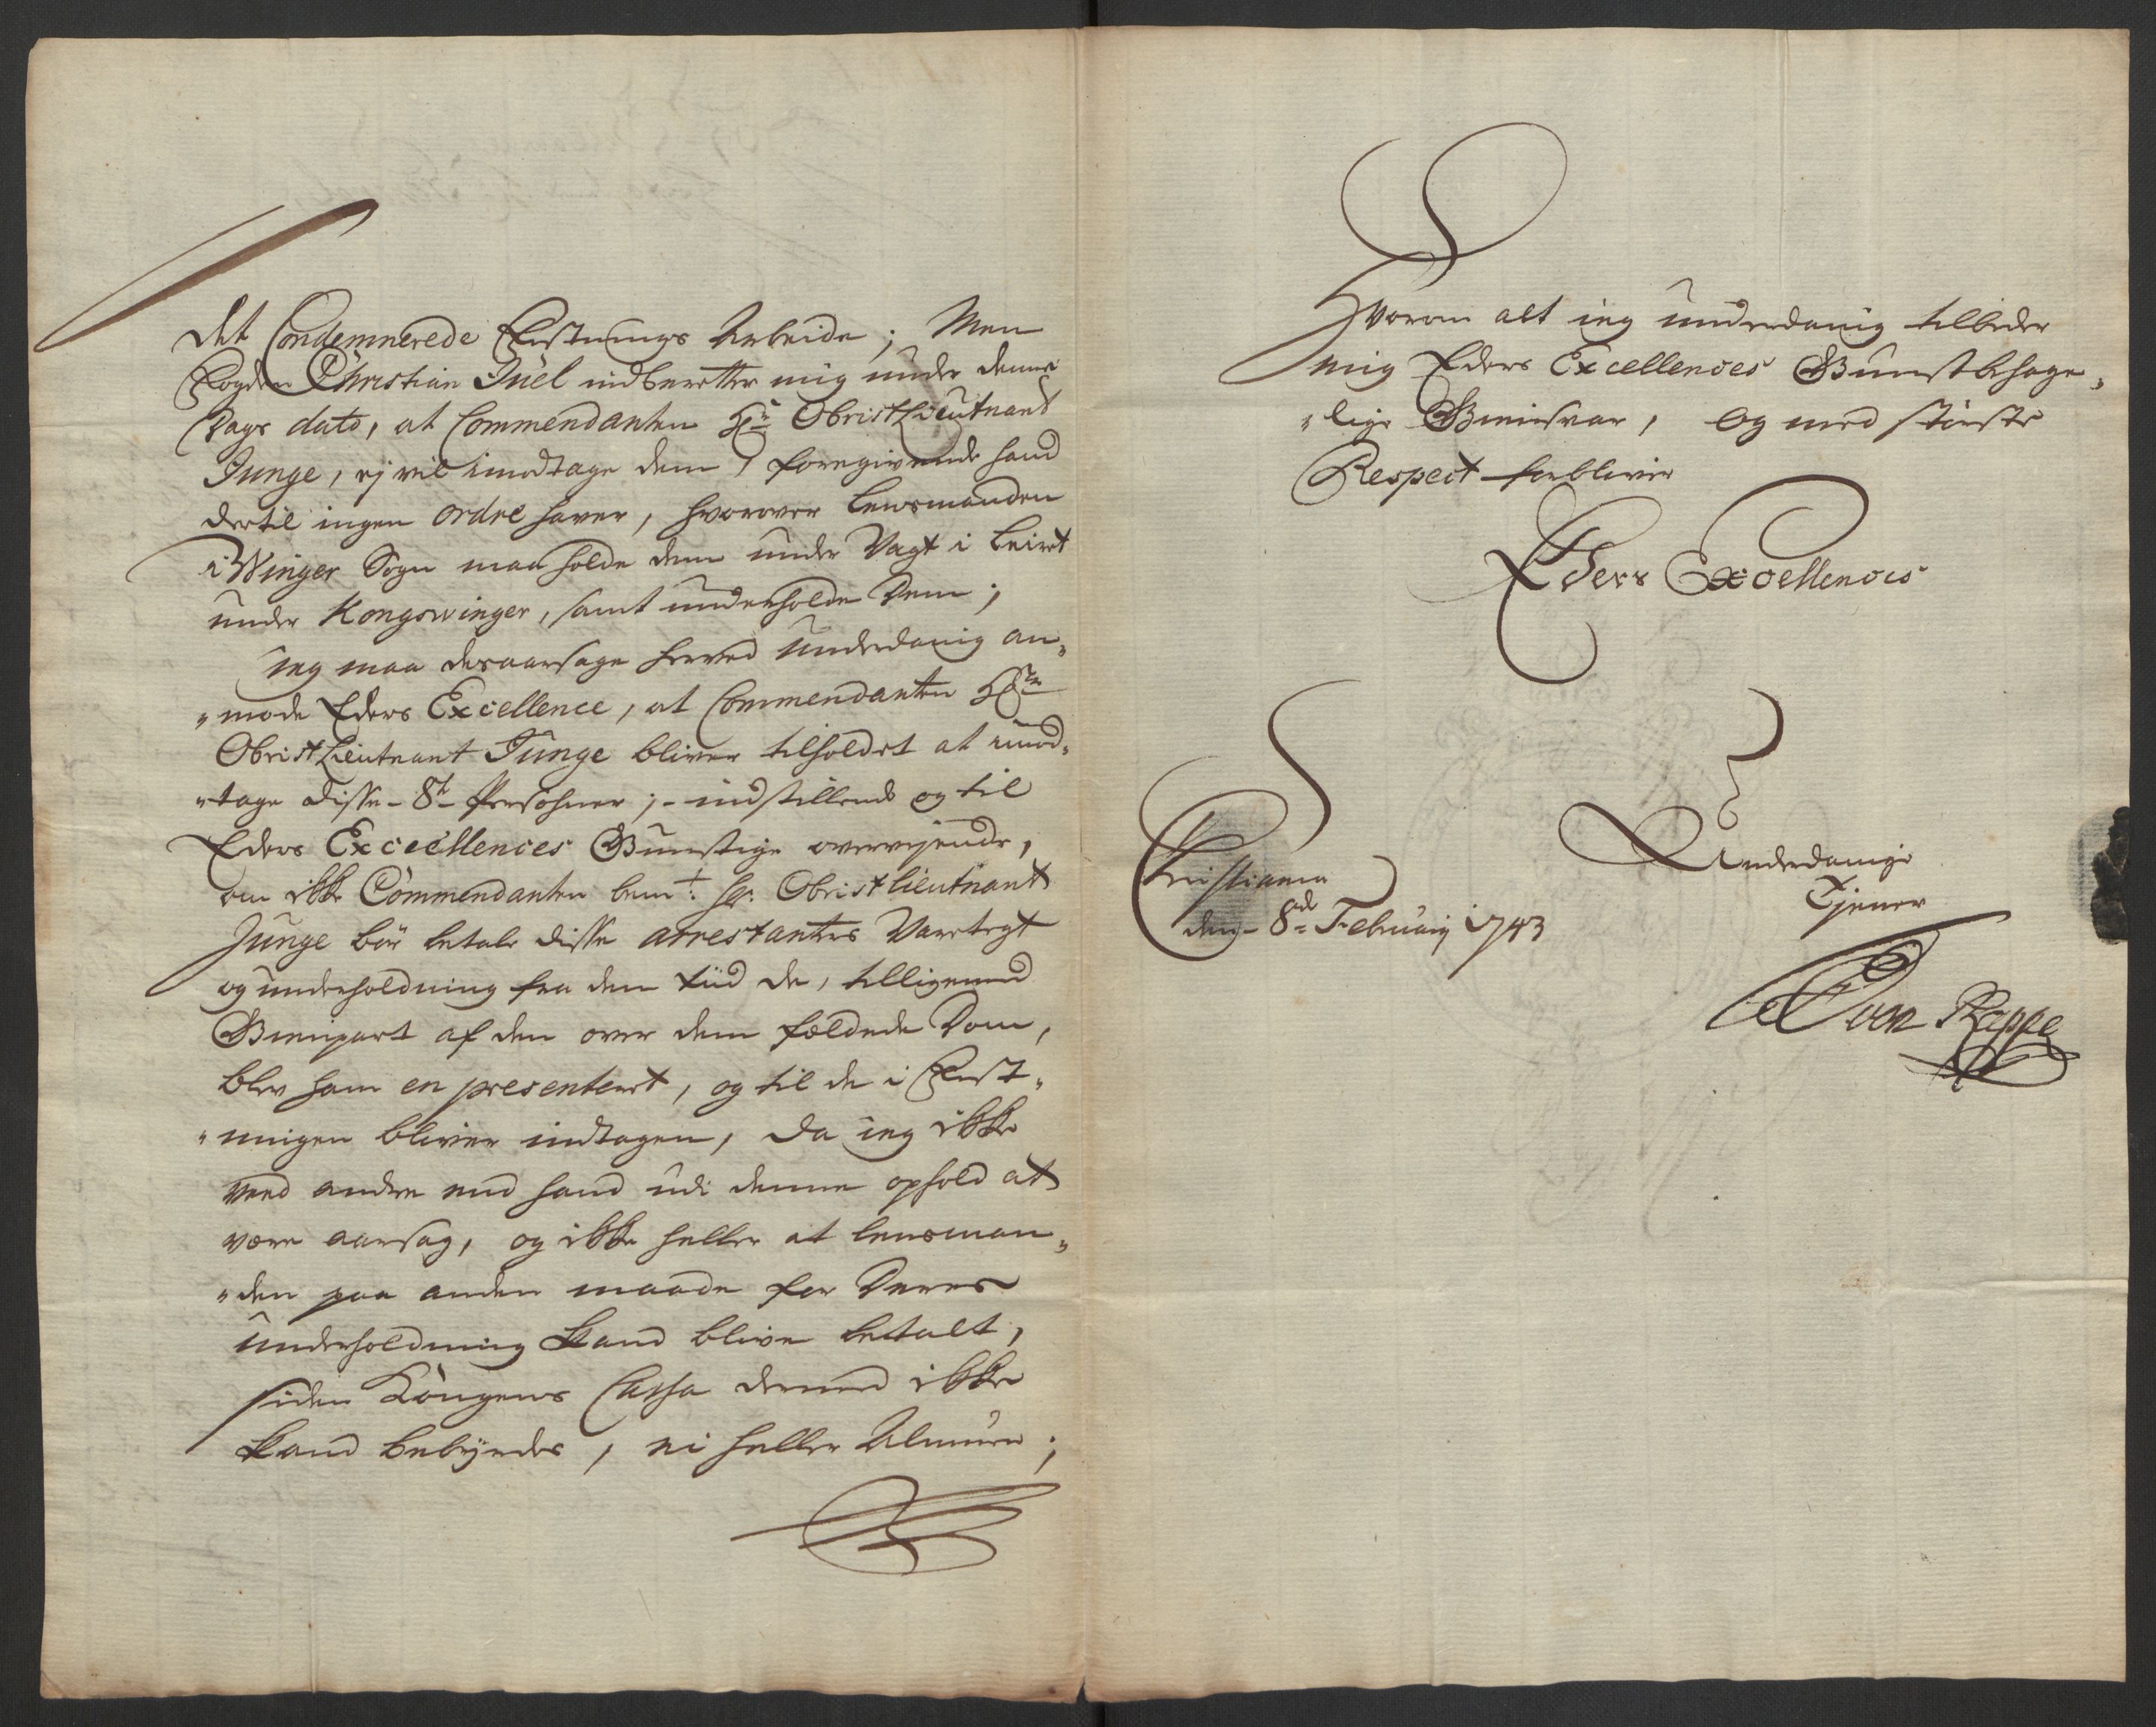 det Condemnerede Festnings Arbeide; Men
Fogden Christian Juel indberetter mig under denne
Dags dato, at Commendanten Hr Obristlieutnant
Junge, ej vil imodtage dem, foregivende hand
dertil ingen ordre haver, hvorover Lensmanden
i Winger Sogn maa holde dem under Vagt i Leiret
under Kongswinger, samt underholde Dem;
jeg maa desaarsage herved underdanig an„
„mode Eders Excellence, at Commendanten Hr
Obristlieutnant Junge bliver tilholdet at imod„
„tage disse - 8te Persohner; - indstillende og til
Eders Excellences Gunstige overvejende,
om ikke Commendanten bemt: Hr: Obristlieutnant
Junge bør betale disse arrestanters Varetegt
og underholdning fra den tiid de, tilligemed
Gienpart af den over dem fældede Dom,
blev ham en presenteert, og til de i Fest„
„ningen bliver indtagen, da jeg ikke
veed anden end hand udi denne ophold at
være aarsag, og ikke heller at lensman„
„den paa anden maade for Deres
underholdning kand blive betalt,
siden Kongens Cassa dermed ikke
kand bebyrdes, ei heller Almuen;
Hvorom alt jeg underdanig tilbeder
mig Eders Excellences Gunstbehage„
„lige Giensvar, og med største
Respect forbliver
Eders Excellences
Christiania
den - 8de Februarij 1743
Underdanige
Tjener
von Rappe